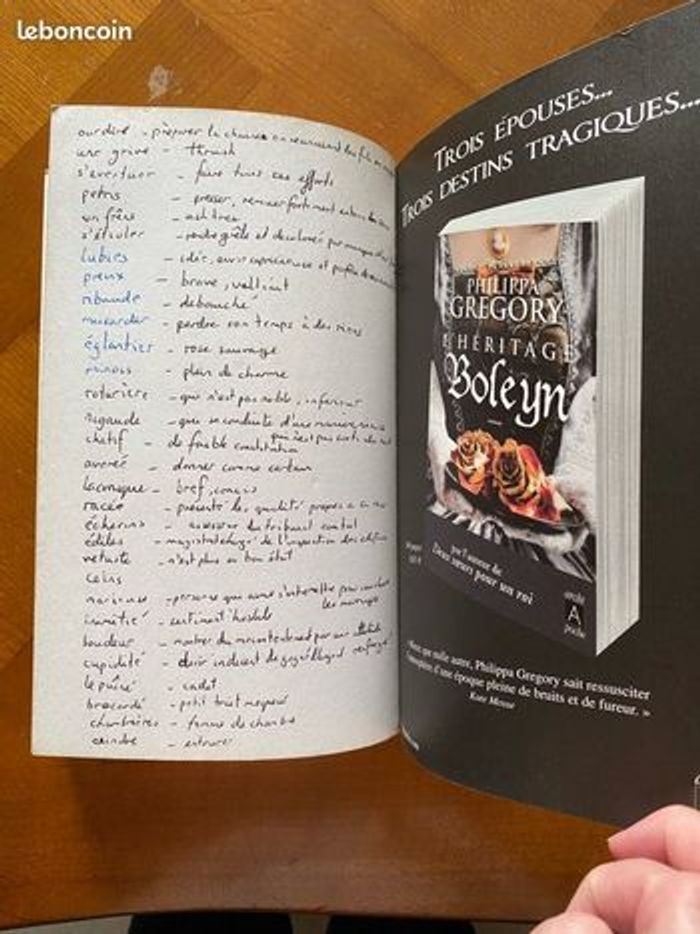 leboncoin
ourdire - préparer la chaine en réunissant les fils en
une grive - thrush
s'évertuer - faire tous ses efforts
petris - presser, remuer fortement
un frêne - ash tree
s'étioler - rendre grêle et décoloré par manque
lubies - idée, envie capricieuse et parfois
preux - brave, vaillant
ribaude - debauché
musarder - perdre son temps à des riens
églantier - rose sauvage
minois - plein de charme
roturière - qui n'est pas noble, inferieur
nigaude - que se conduite d'une manière niaise
chétif - de faible constitution
averée - donner comme certain
laconique - bref, concis
racée - présente les qualités propres a
échevins - assesseur du tribunal
édiles - magistrat chargé de l'inspection des edifices
vetuste - n'est plus en bon état
céans
marieuse - personne qui aime s'entremettre pour
les mariages
inimitié - sentiment hostile
boudeur - montrer du mecontentement par une attitude
cupidité - desir indecent de gagner l'argent
le puîné - cadet
brocardé - petit trait moqueur
chambrières - femme de chambre
ceindre - entourer
TROIS ÉPOUSES...
TROIS DESTINS TRAGIQUES...
PHILIPPA
GREGORY
L'HÉRITAGE
Boleyn
roman
par l'auteur de
Deux sœurs pour un roi
archi
A
poche
« Mieux que nulle autre, Philippa Gregory sait ressusciter
l'atmosphère d'une époque pleine de bruits et de fureur. »
Kate Mosse